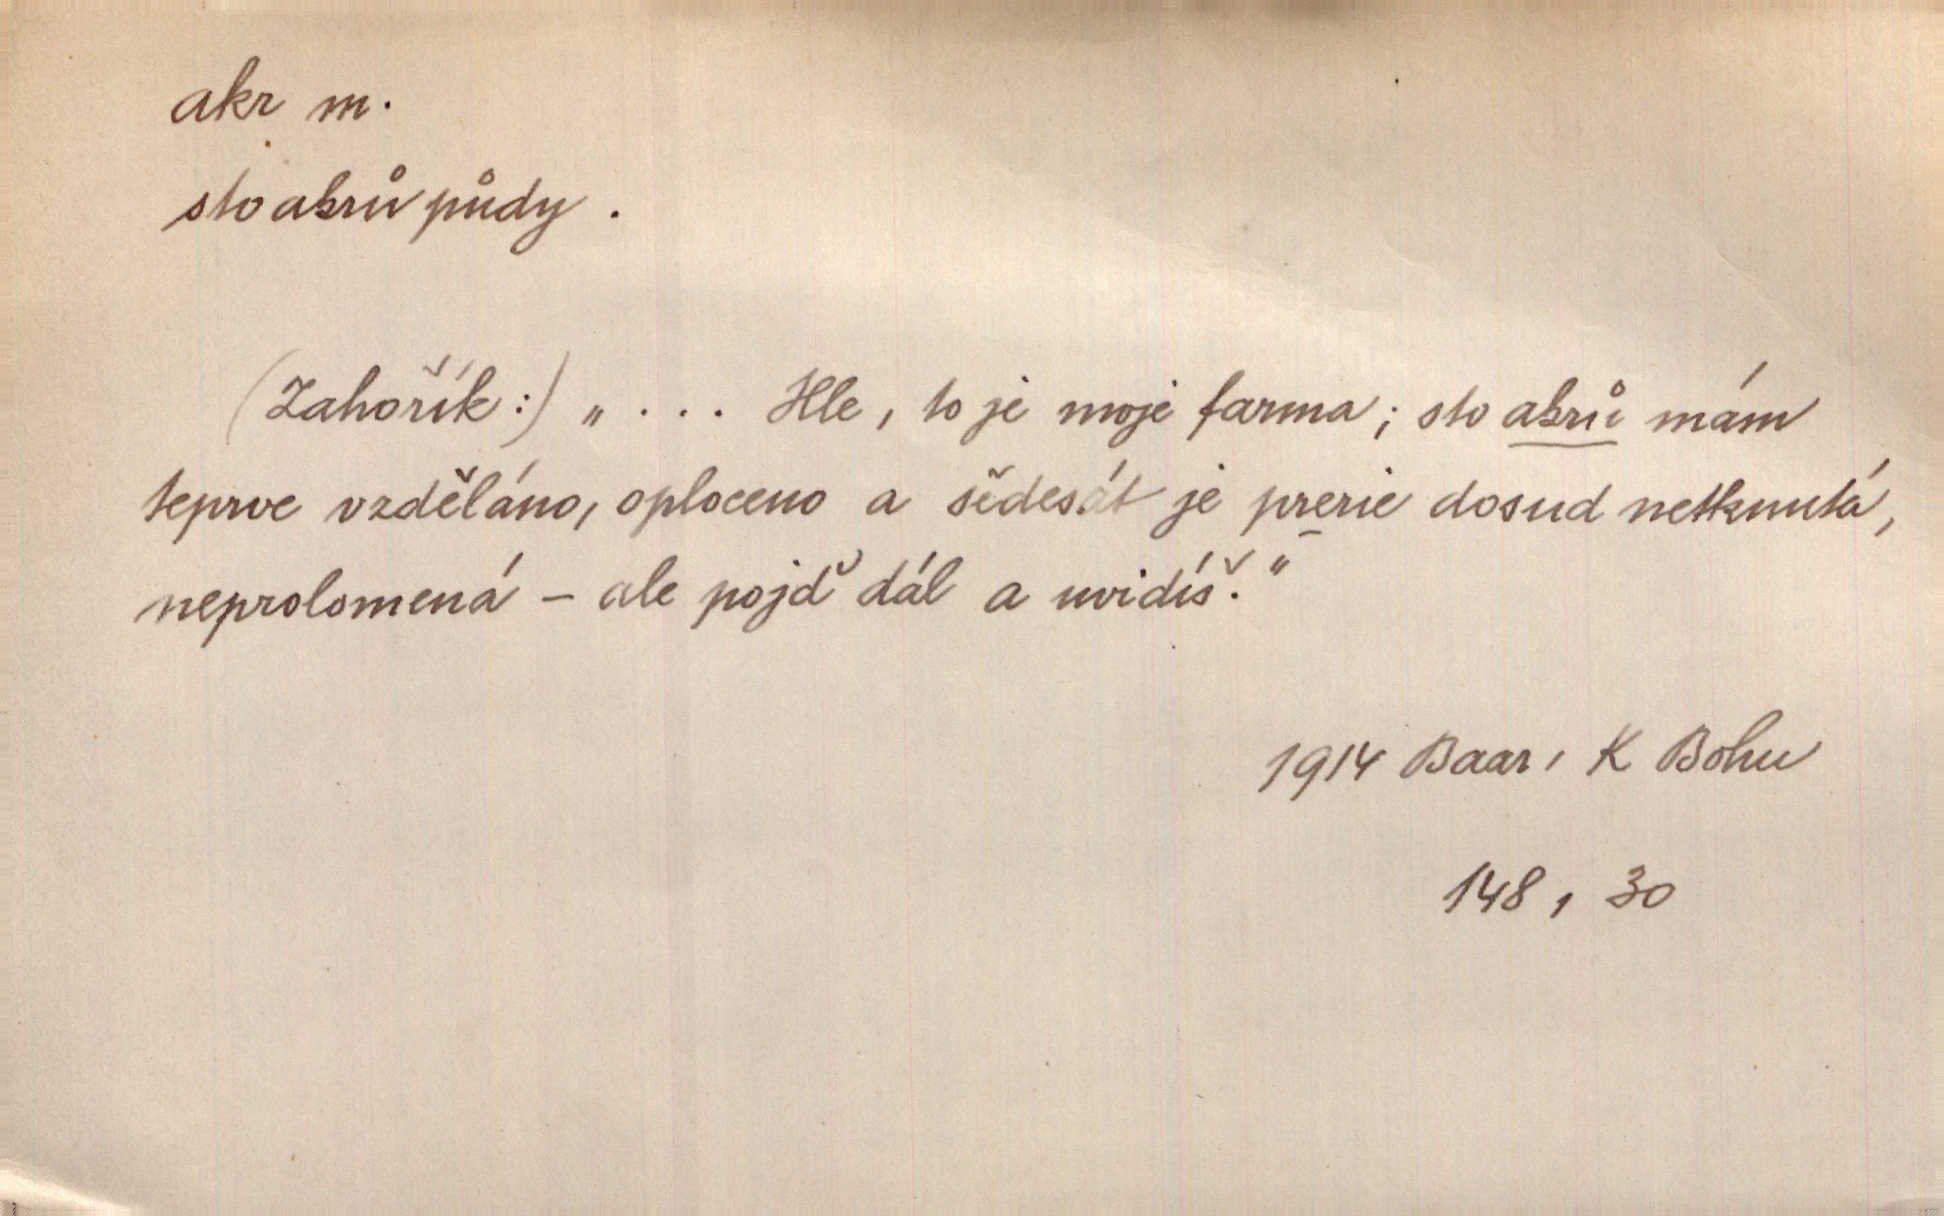 akr m.
sto akrů půdy.
(Zahořík:) „... Hle, to je moje farma; sto akrů mám
teprve vzděláno, oploceno a šedesát je prerie dosud netknutá,
neprolomená – ale pojď dál a uvidíš."
1914 Baar, K Bohu
148, 30